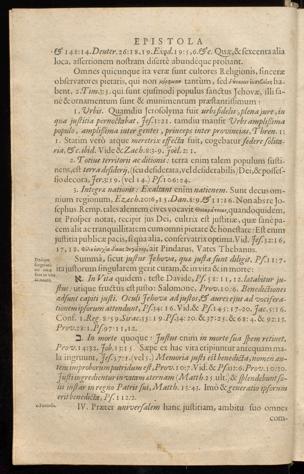 EPISTOLA
& 142:14. Deuter. 26:18, 19. Exod. 19:5, 6. &c. Quæ, & sexcenta alia
loca, assertionem nostram disertè abundéque probant.
Omnes quicunque ita veræ sunt cultores Religionis, sinceræ
observatores pietatis, qui non tantum, sed ha-
bent. 2. Tim. 3:5. qui sunt ejusmodi populus sanctus Jehovæ, illi sa-
nè & ornamentum sunt & munimentum præstantissimum:
1. Urbis. Quamdiu Jerosolyma fuit urbs fidelis, plena jure, in
qua justitia pernoctabat, Jes. 1:21. tamdiu mansit Urbs amplissima
populo, amplissima inter gentes, princeps inter provincias. Thren. 1:
1. Statim verò atque meretrix effecta fuit, cogebatur sedere solita-
ria, &c. ibid. Vide & Zach. 8:3-9. Joël. 2:1.
2. Totius territorii ac ditionis: terra enim talem populum susti-
nens, est terra desiderij, (seu desiderata, vel desiderabilis,) Dei, & posses-
sio decora, Jer. 3:19. (vel 14.) Ps. 106:24.
3. Integra nationis: Exaltant enim nationem. Sunt decus om-
nium regionum, Ezech. 20:6, 15. Dan. 8:9. & 11:16. Non abs re Jo-
sephus Remp. talem alentem cives vocavit quandoquidem,
ut Prosper notat, recipit jus Dei, cultrix est justitiæ, quæ sanc pa-
cem alit ac tranquillitatem cum omni pietate & honestate: Est enim
justitia publica pacis, si qua alia, conservatrix optima. Vid. Jes. 32:16,
17, 18. ait Pindarus, Vates Thebanus.
Summa, sicut justus Jehova, qua justa sunt diligit. Ps. 11:7.
ita justorum singularem gerit curam, & in vita & in morte:
א. In Vita quidem: teste Davide, Ps. 58:11, 12. lætabitur ju-
stus: utique fructus est justo: Salomone, Prov. 10:6. Benedictiones
adsunt capiti justi. Oculi Jehovæ ad justos, & aures ejus ad vocifera-
tionem ipsorum attendunt, Ps. 34:16. Vid. & Ps. 145:17-20. Jac. 5:16.
Conf. 1. Reg. 8:59. Sirac. 15:19. Ps. 34:20. & 37:25. & 68:4. & 92:13.
Prov. 28:1. Ps. 97:11, 12.
ב. In morte quoque: Justus enim in morte sua spem retinet,
Prov. 14:32. Job. 13:15. Sæpe ex hac vita eripiuntur antequam ma-
la ingruunt, Jes. 57:1. (vel 5.) Memoria justi est benedicta, nomen au-
tem improborum putridum est, Prov. 10:7. Vid. & Ps. 112:6. Prov. 10:30.
Justi ingredientur in vitam æternam (Matth. 25. ult.) & splendebunt so-
lis instar in regno Patris sui, Matth. 13:43. Imò & generatio ipsorum
erit benedicta, Ps. 112:2.
IV. Præter universalem hanc justitiam, ambitu suo omnes
com-